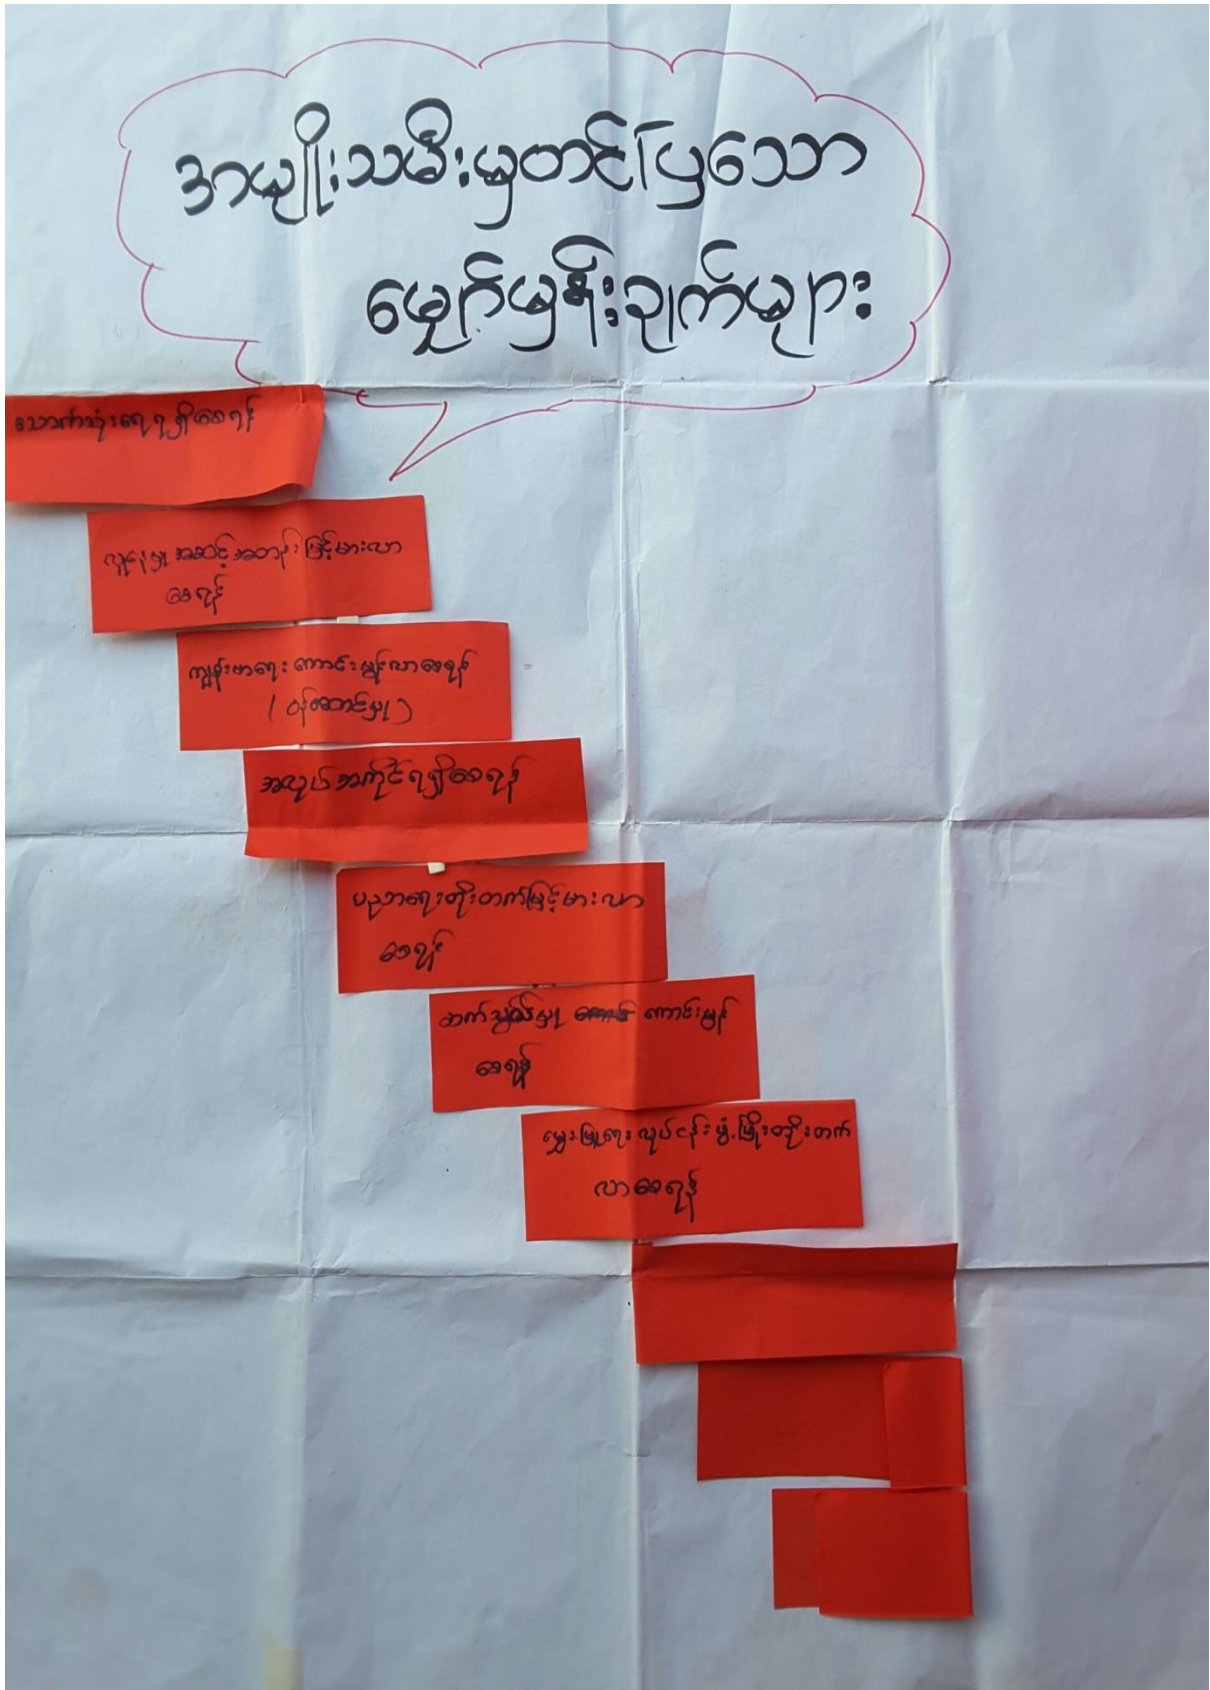 အမျိုးသမီးမှတင်ပြသော
မျှော်မှန်းချက်များ
သောက်သုံးရေရရှိစေရန်
လူနေမှုအဆင့်အတန်းမြင့်မားလာ
စေရန်
ကျန်းမာရေးကောင်းမွန်လာစေရန်
(ဝန်ဆောင်မှု)
အလုပ်အကိုင်ရရှိစေရန်
ပညာရေးတိုးတက်မြင့်မားလာ
စေရန်
ဆက်သွယ်မှု ကောင်းမွန်
စေရန်
မွေးမြူရေးလုပ်ငန်းဖွံ့ဖြိုးတိုးတက်
လာစေရန်